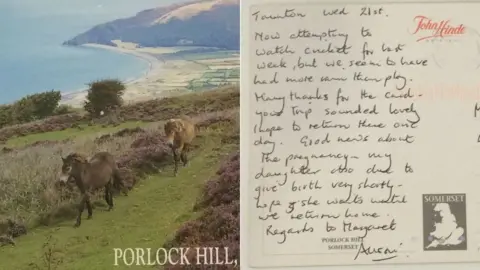 PORLOCK HILL,
Taunton Wed 21st.
Now attempting to
watch cricket for last
week, but we seem to have
had more rain than play.
Many thanks for the card -
your trip sounded lovely
I hope to return there one
day. Good news about
the pregnancy - my
daughter also due to
give birth very shortly -
hope she waits until
we return home.
Regards to Margaret
John Hinde
ORIGINAL
PORLOCK HILL
SOMERSET
SOMERSET